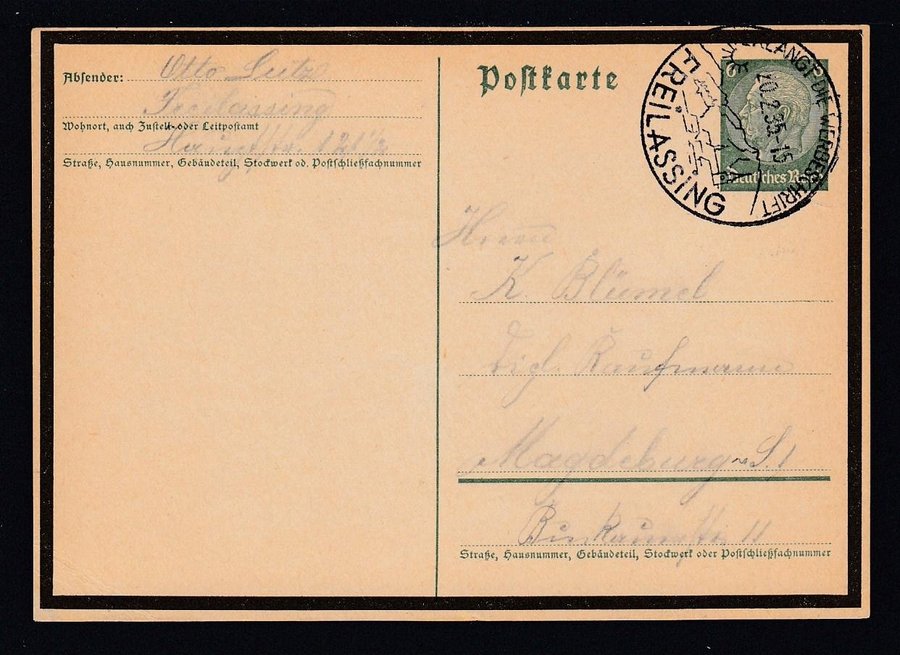 Absender: Otto Leitz
Freilassing
Wohnort, auch Zustell- oder Leitpostamt
Straße, Hausnummer, Gebäudeteil, Stockwerk od. Postschließfachnummer
Postkarte
6 6
Deutsches Reich
VERLANGT DIE WERBESCHRIFT
20.2.35.-15
FREILASSING
Herrn
K Blümel
Kaufmann
Magdeburg
11
Straße, Hausnummer, Gebäudeteil, Stockwerk oder Postschließfachnummer